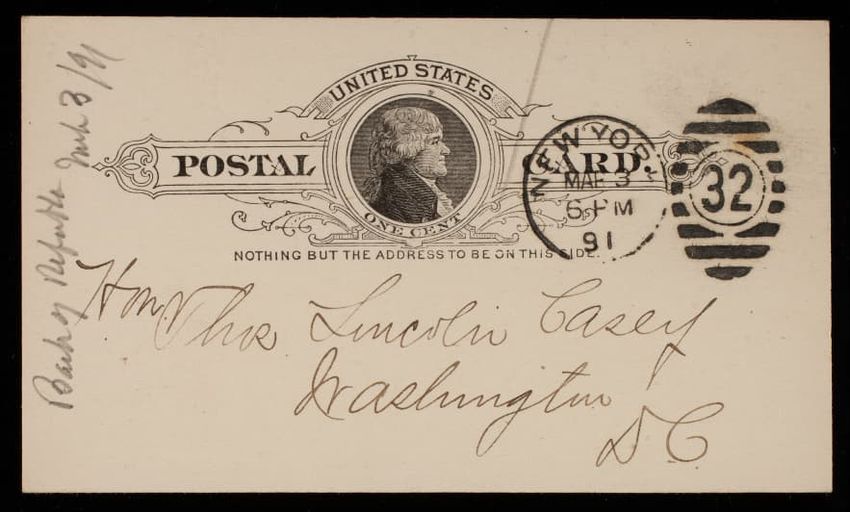 UNITED STATES
POSTAL CARD.
ONE CENT
NOTHING BUT THE ADDRESS TO BE ON THIS SIDE.
NEW YORK
MAR 3
6 PM
91
32
Hon Thos Lincoln Casey
Washington
D C
Bank of Republic Mch 3/91